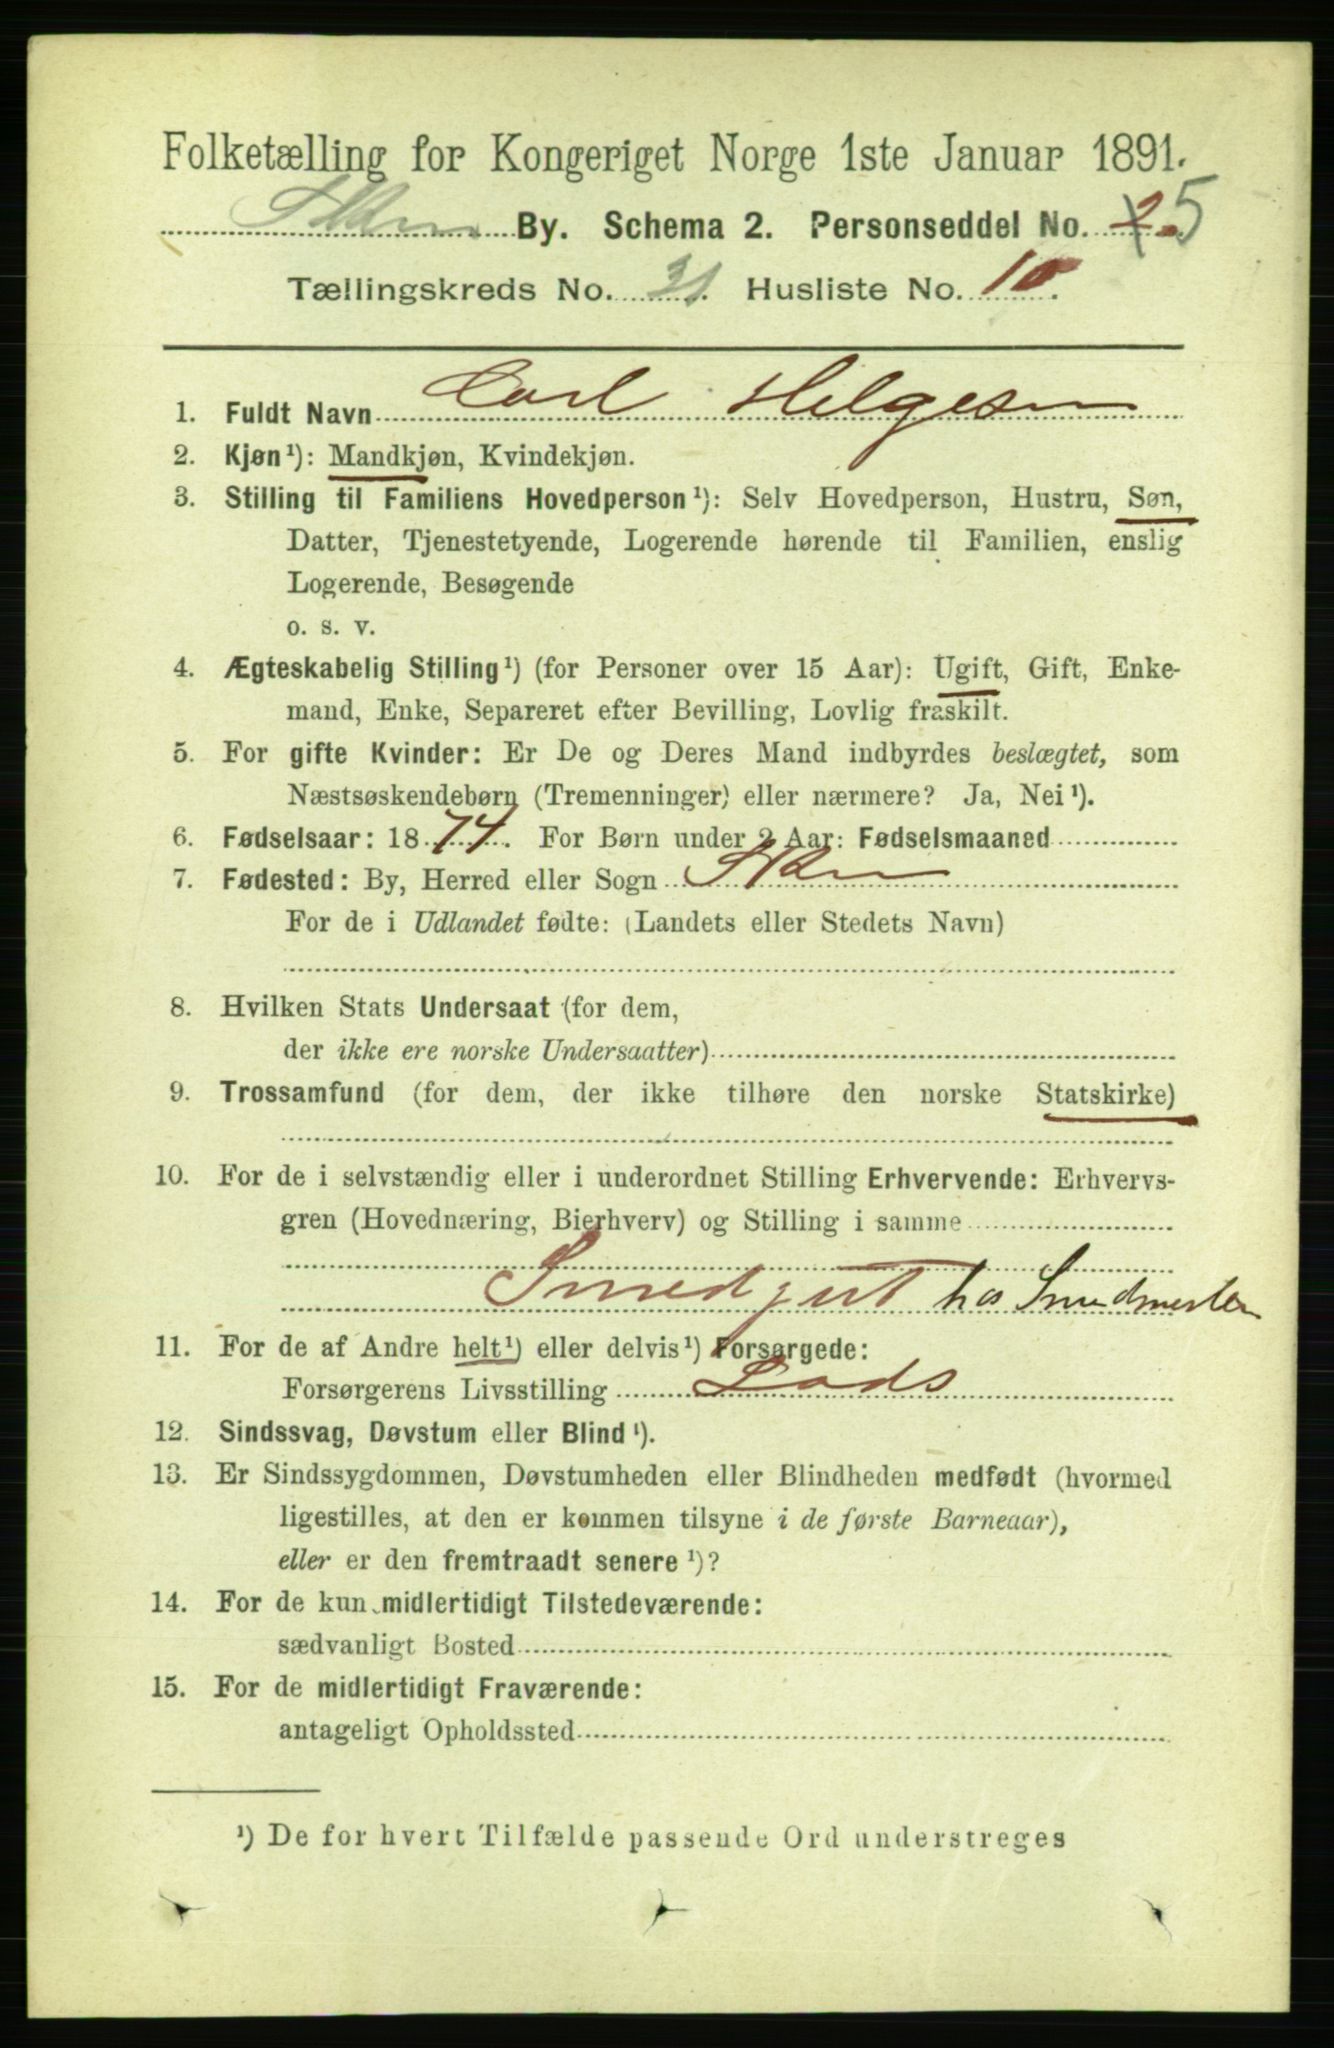 Folketælling for Kongeriget Norge 1ste Januar 1891.
Skien By. Schema 2. Personseddel No. 2. 5
Tællingskreds No. 31. Husliste No. 10.
1. Fuldt Navn Carl Helgesen
2. Kjøn ¹): Mandkjøn, Kvindekjøn.
3. Stilling til Familiens Hovedperson ¹): Selv Hovedperson, Hustru, Søn,
Datter, Tjenestetyende, Logerende hørende til Familien, enslig
Logerende, Besøgende
o. s. v.
4. Ægteskabelig Stilling ¹) (for Personer over 15 Aar): Ugift, Gift, Enke-
mand, Enke, Separeret efter Bevilling, Lovlig fraskilt.
5. For gifte Kvinder: Er De og Deres Mand indbyrdes beslægtet, som
Næstsøskendebørn (Tremenninger) eller nærmere? Ja, Nei ¹).
6. Fødselsaar: 1874. For Børn under 2 Aar: Fødselsmaaned
7. Fødested: By, Herred eller Sogn Skien
For de i Udlandet fødte: (Landets eller Stedets Navn)
8. Hvilken Stats Undersaat (for dem,
der ikke ere norske Undersaatter)
9. Trossamfund (for dem, der ikke tilhøre den norske Statskirke)
10. For de i selvstændig eller i underordnet Stilling Erhvervende: Erhvervs-
gren (Hovednæring, Bierhverv) og Stilling i samme
Smedgut hos Smedmester
11. For de af Andre helt ¹) eller delvis ¹) Forsørgede:
Forsørgerens Livsstilling Lods
12. Sindssvag, Døvstum eller Blind ¹).
13. Er Sindssygdommen, Døvstumheden eller Blindheden medfødt (hvormed
ligestilles, at den er kommen tilsyne i de første Barneaar),
eller er den fremtraadt senere ¹)?
14. For de kun midlertidigt Tilstedeværende:
sædvanligt Bosted
15. For de midlertidigt Fraværende:
antageligt Opholdssted
¹) De for hvert Tilfælde passende Ord understreges